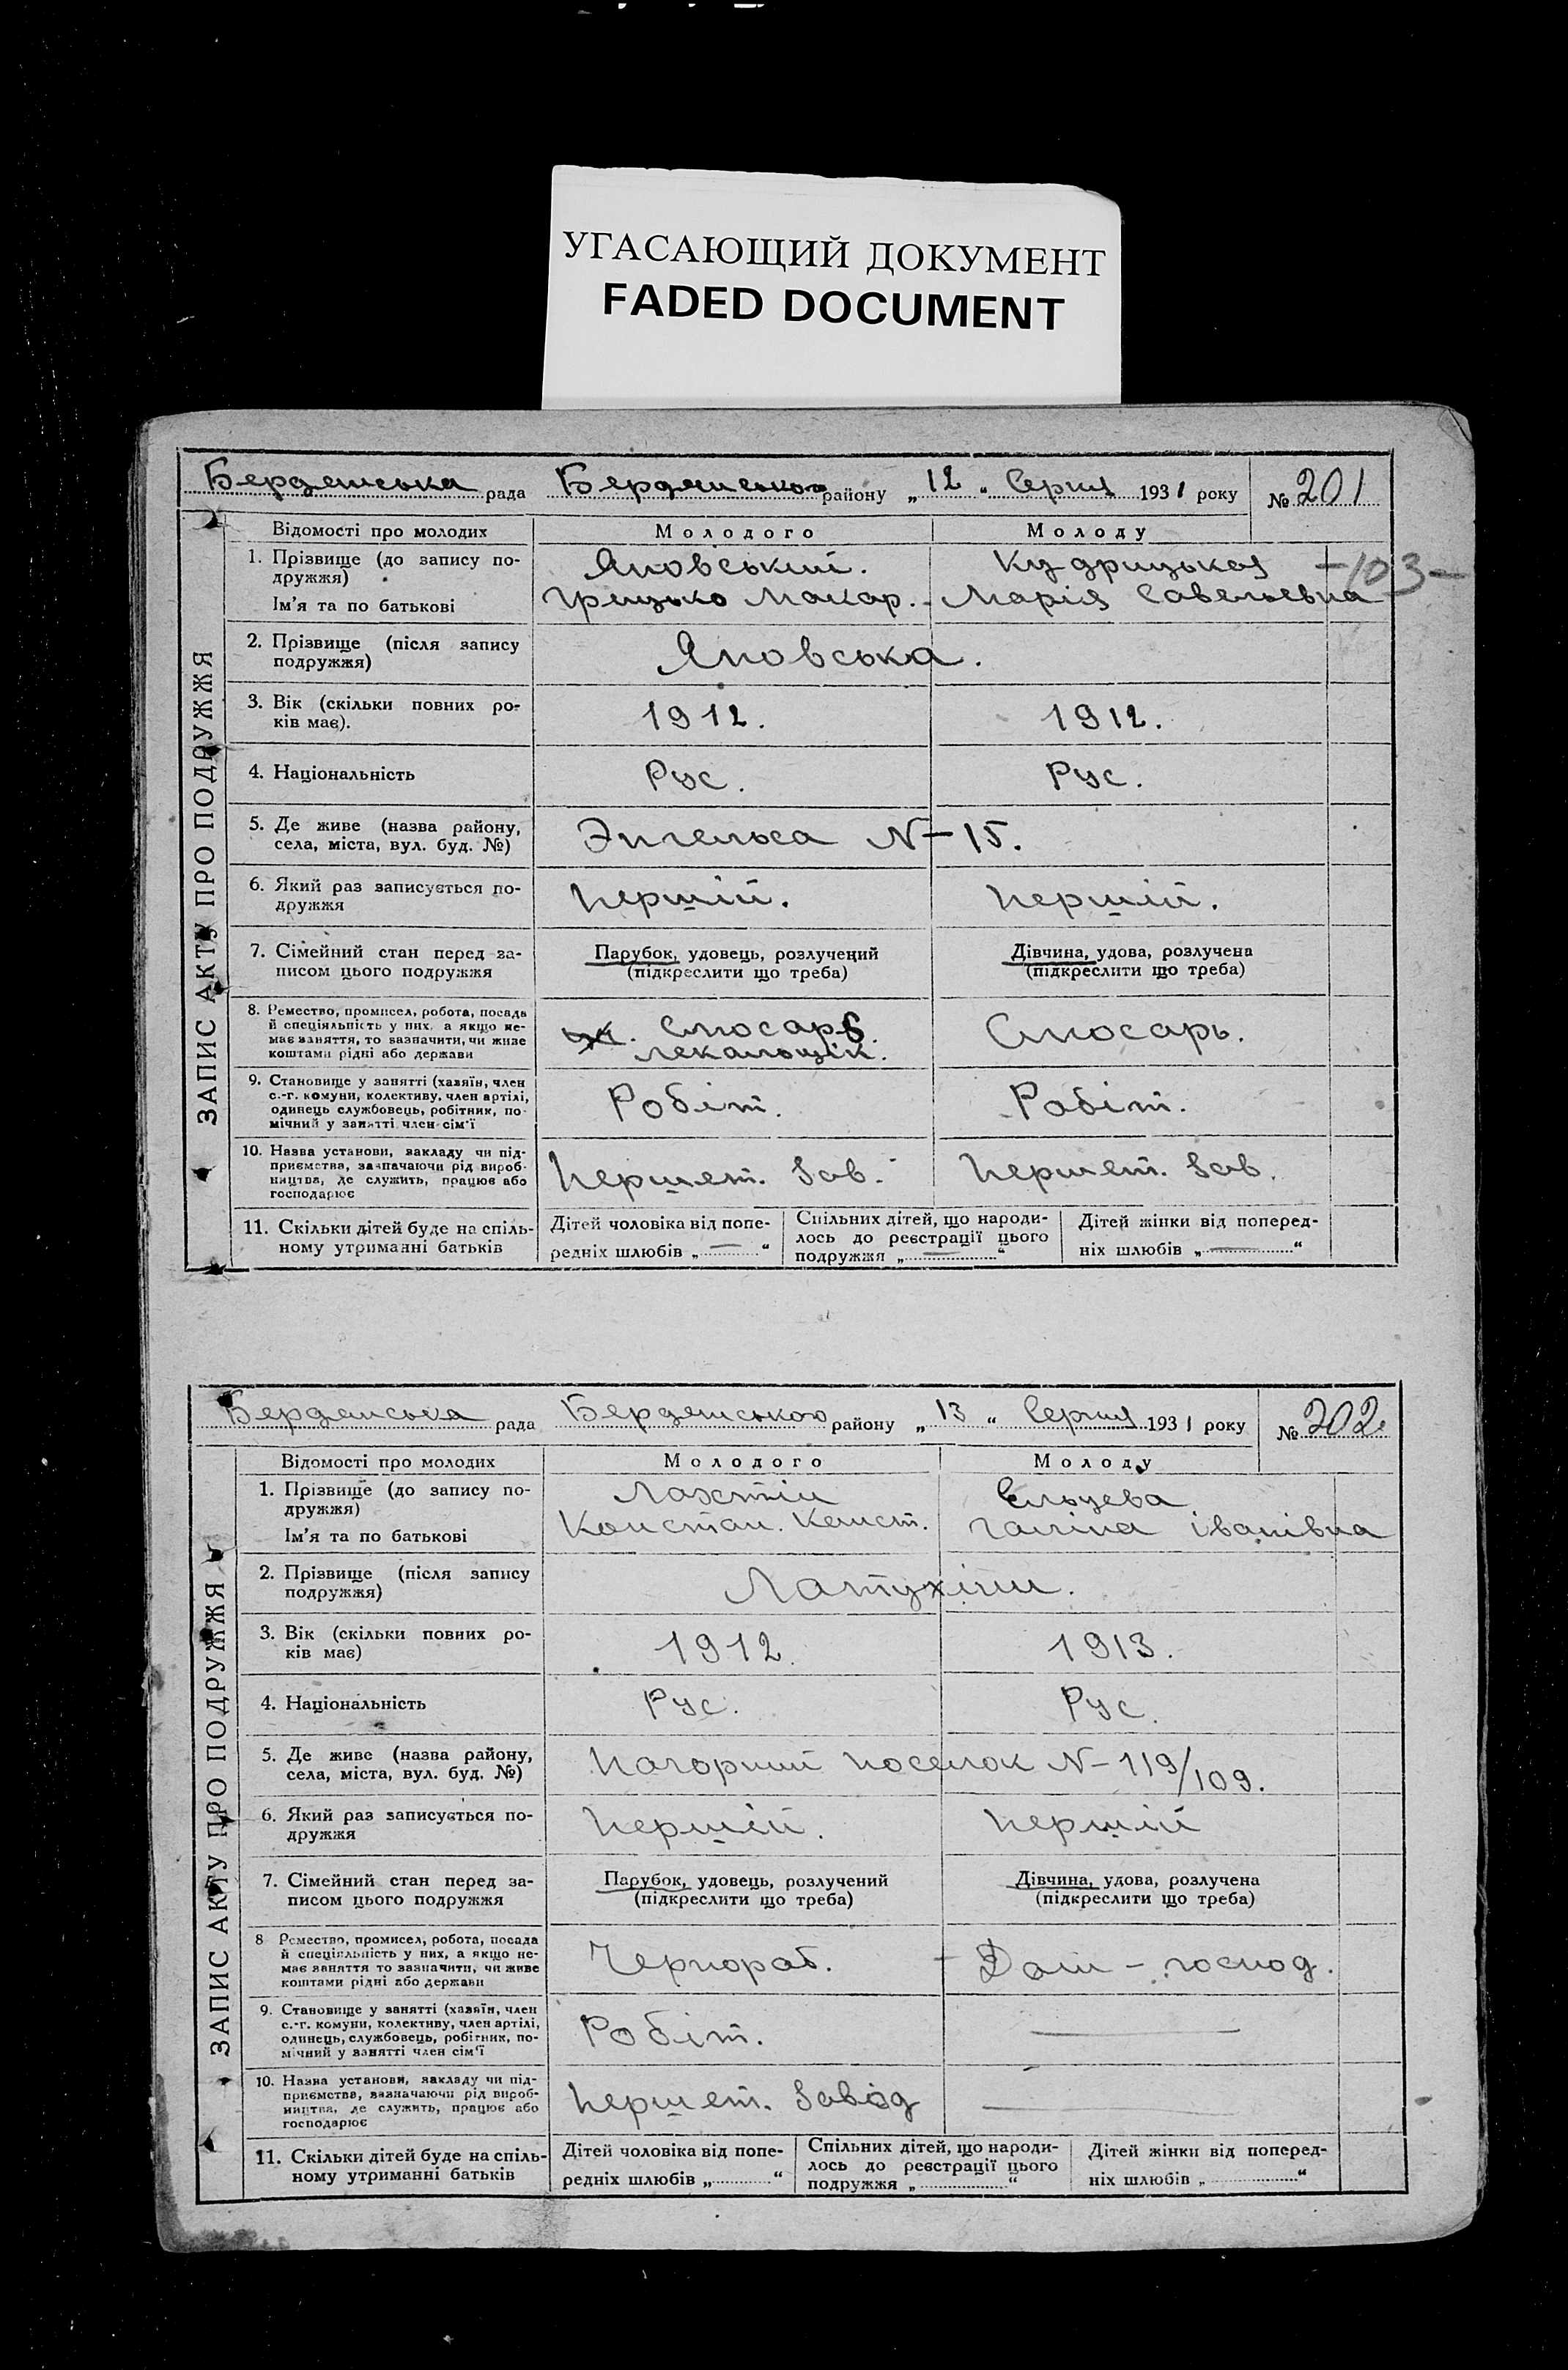 УГАСАЮЩИЙ ДОКУМЕНТ
FADED DOCUMENT
Бердянська рада Бердянського району „12“ Серпня 1931 року № 201
ЗАПИС АКТУ ПРО ПОДРУЖЖЯ
Відомості про молодих Молодого Молоду
1. Прізвище (до запису по- Яновський. Кудрицькая -103-
дружжя)
Ім'я та по батькові Грицько Макар. Марія Савельевна
2. Прізвище (після запису Яновська.
подружжя)
3. Вік (скільки повних ро- 1912. 1912.
ків має).
4. Національність Рус. Рус.
5. Де живе (назва району, Энгельса N-15.
села, міста, вул. буд. №)
6. Який раз записується по- першій. першій.
дружжя
7. Сімейний стан перед за- Парубок, удовець, розлучений Дівчина, удова, розлучена
писом цього подружжя (підкреслити що треба) (підкреслити що треба)
8. Ремество, промисел, робота, посада Слюсарь Слюсарь.
й спеціяльність у них, а якщо не- лекальщік.
має заняття, то зазначити, чи живе
коштами рідні або держави
9. Становище у занятті (хазяїн, член Робіт. Робіт.
с.-г. комуни, колективу, член артілі,
одинець службовець, робітник, по-
мічний у занятті член сім'ї
10. Назва установи, закладу чи під- Першет. Зав. Першет. Зав.
приємства, зазначаючи рід вироб-
ництва, де служить, працює або
господарює
11. Скільки дітей буде на спіль- Дітей чоловіка від попе- Спільних дітей, що народи- Дітей жінки від поперед-
ному утриманні батьків редніх шлюбів „—“ лось до реєстрації цього ніх шлюбів „—“
подружжя „—“
Бердянська рада Бердянського району „13“ Серпня 1931 року № 202
ЗАПИС АКТУ ПРО ПОДРУЖЖЯ
Відомості про молодих Молодого Молоду
1. Прізвище (до запису по- Лахтін Ельцева
дружжя)
Ім'я та по батькові Констан. Конст. Галіна Іванівна
2. Прізвище (після запису Латухіни.
подружжя)
3. Вік (скільки повних ро- 1912. 1913.
ків має)
4. Національність Рус. Рус.
5. Де живе (назва району, Нагорний поселок N-119/109.
села, міста, вул. буд. №)
6. Який раз записується по- першій. першій
дружжя
7. Сімейний стан перед за- Парубок, удовець, розлучений Дівчина, удова, розлучена
писом цього подружжя (підкреслити що треба) (підкреслити що треба)
8 Ремество, промисел, робота, посада Чернораб. Дом-господ.
й спеціяльність у них, а якщо не-
має заняття то зазначити, чи живе
коштами рідні або держави
9. Становище у занятті (хазяїн, член Робіт. —
с.-г. комуни, колективу, член артілі,
одинець, службовець, робітник, по-
мічний у занятті член сім'ї
10. Назва установи, закладу чи під- Першет. Завод —
приємства, зазначаючи рід вироб-
ництва, де служить, працює або
господарює
11. Скільки дітей буде на спіль- Дітей чоловіка від попе- Спільних дітей, що народи- Дітей жінки від поперед-
ному утриманні батьків редніх шлюбів „“ лось до реєстрації цього ніх шлюбів „“
подружжя „“